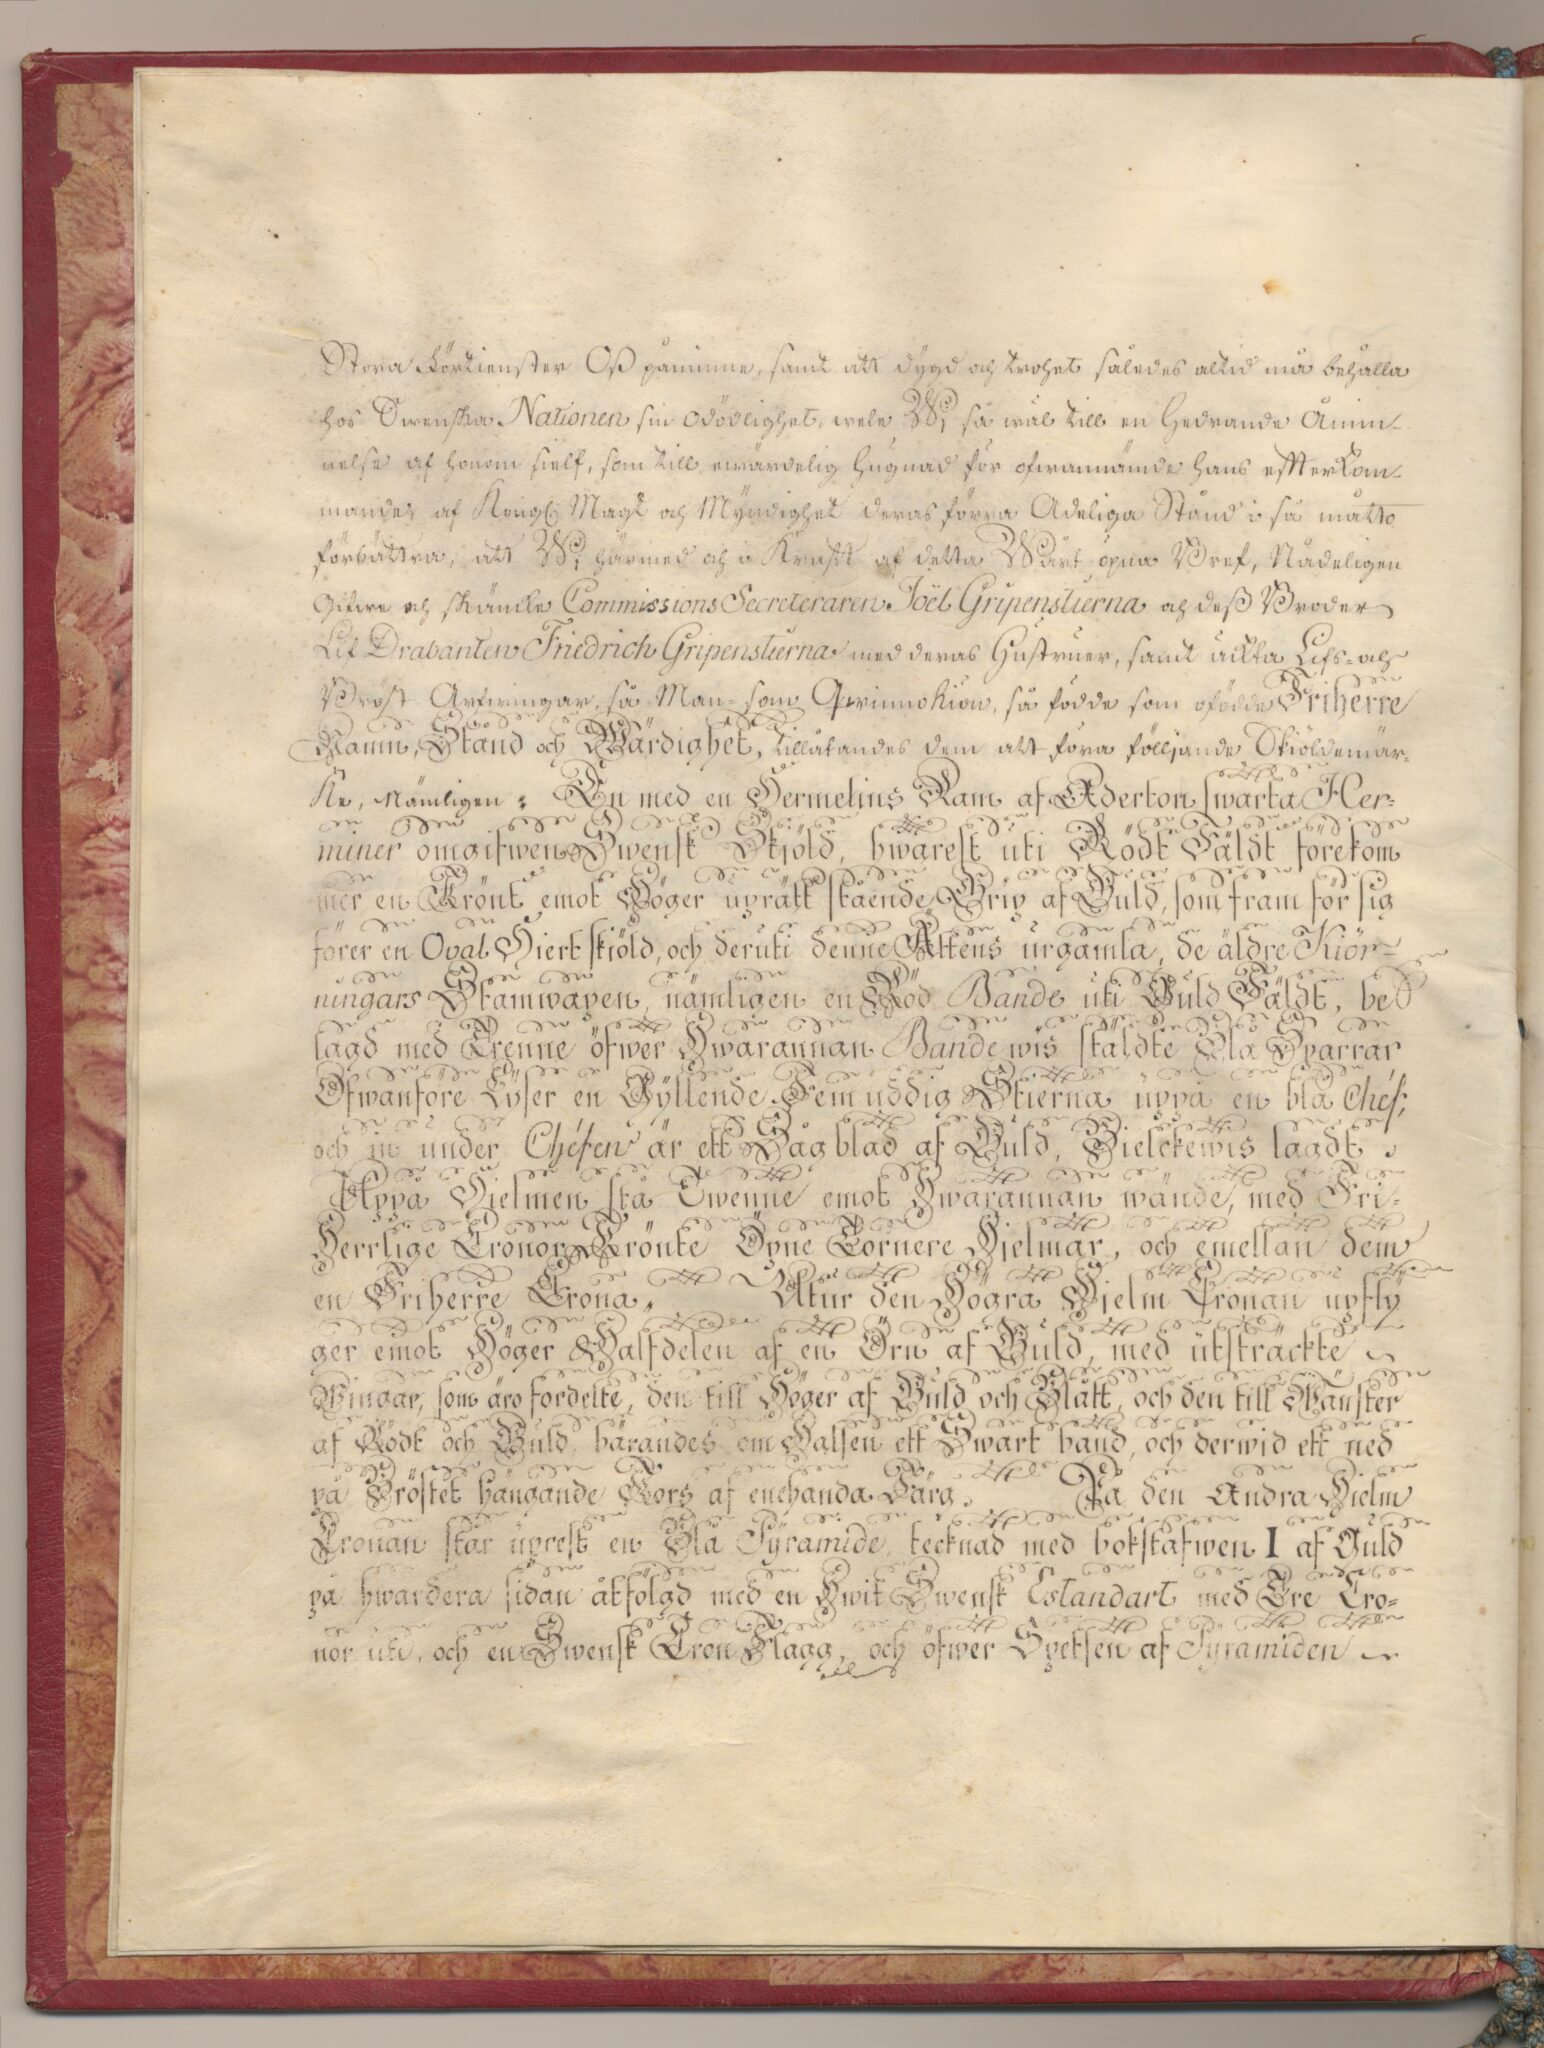 Stora Förtienster Oß påminne, samt att dygd och trohet således altid må behålla
hos Swenska Nationen sin Odödlighet, wele Wi så wäl till en Hedrande Åmin-
nelse af honom sielf, som till ewärdelig hugnad för ofwannämde hans effterkom-
mande, af Kongl. Magt och Myndighet deras förra Adeliga Stånd i så matto
förbättra, att Wi härmed och i Krafft af detta Wårt öpna Bref, Nådeligen
Gifwe och skäncke Commissions Secreteraren Joël Gripenstierna och deß Broder
Lif Drabanten Friedrich Gripenstierna med deras Hustruer, samt äckta Lifs- och
Bröst Arfwingar, så Man- som Qwinnokiön, så födde som ofödde Friherre
Namn, Stånd och Wärdighet, tillåtandes dem att föra följande Skiöldemär-
ke, Nämligen: En med en Hermelins Ram af Aderton swarta Her-
miner omgifwen Swensk Skjöld, hwarest uti Rödt Fäldt förekom
mer en Krönt emot Höger uprätt stående Grip af Guld, som fram för sig
förer en Oval Hiert skjöld, och deruti denne Ättens urgamla, de äldre Kiör-
ningars Stamwapen, nämligen en Röd Bande uti Guld Fäldt, be
lagd med Trenne öfwer Hwarannan Bandewis stäldte Blå Sparrar
Ofwanföre Lyser en Gyllende Femuddig Stierna uppå en blå Chéf,
och in under Chéfen är ett Sågblad af Guld, Bielckewis lagdt.
Uppå Hjelmen stå Twenne emot Hwarannan wände, med Fri-
Herrlige Cronor Krönte Öpne Tornere Hjelmar, och emellan dem
en Friherre Crona. Utur den Högra Hjelm Cronan upfly
ger emot Höger Halfdelen af en Örn af Guld, med utsträckte
Wingar, som äro fordelte, den till Höger af Guld och Blått, och den till Wänster
af Rödt och Guld, bärandes om Halsen ett Swart band, och derwid ett ned
på Bröstet hängande Kors af enehanda Färg. På den Andra Hielm
Cronan står uprest en Blå Pyramide, tecknad med bokstafwen I af Guld
på hwardera sidan åtfölgd med en Hwit Swensk Estandart med Tre Cro-
nor uti, och en Swensk Cron Flagg, och öfwer Spetsen af Pyramiden